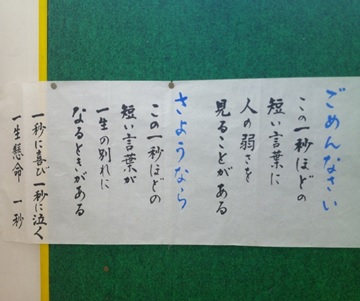 ごめんなさい
この一秒ほどの
短い言葉に
人の弱さを
見ることがある
さようなら
この一秒ほどの
短い言葉が
一生の別れに
なるときがある
一秒に喜び 一秒に泣く
一生懸命 一秒